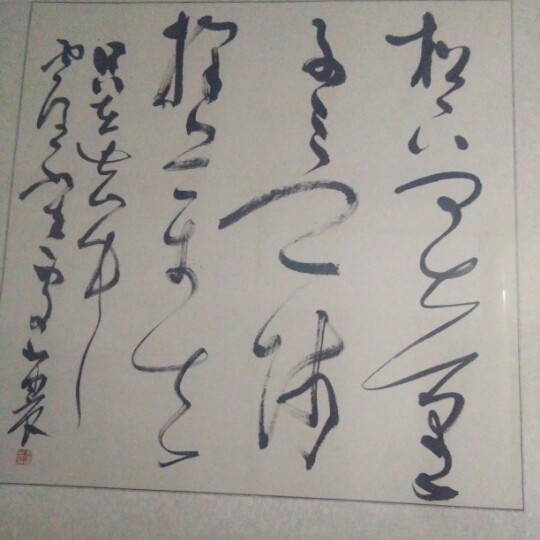 松下問童
子言師
採藥去
只在此山中
雲深不知處